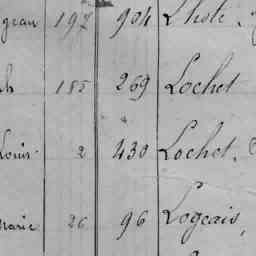 gean 192 904 Lhote,
ph 185 269 Lochet
Louis 2 430 Lochet,
Marie 26 96 Logeais,